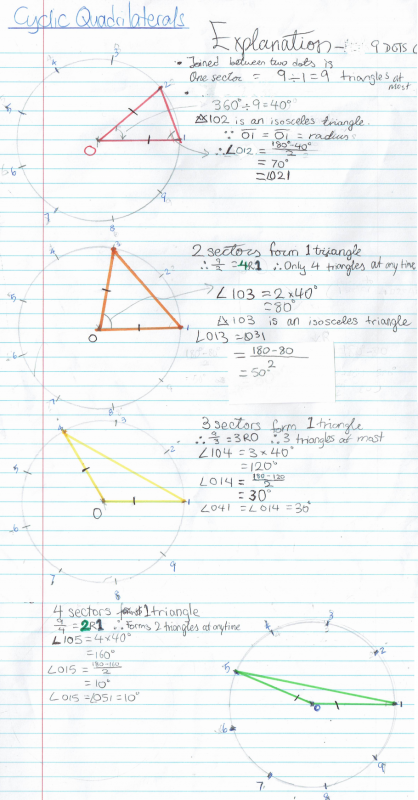 Cyclic Quadrilaterals
Explanation - 9 DOTS
• Joined between two dots is
One sector = 9÷1=9 triangles at most
•
360°÷9=40°
△102 is an isosceles triangle.
∵ O1 = O1 = radius
∴ ∠012 = 180°-40°/2
= 70°
= ∠021
O 1 2 3 4 5 6 7 8 9
2 sectors form 1 triangle
∴ 9/2 = 4R1 ∴ Only 4 triangles at any time
∠103 = 2×40°
= 80°
△103 is an isosceles triangle
∠013 = ∠031
= 180-80/2
= 50°
O 1 2 3 5 6 7 8
3 sectors form 1 triangle
∴ 9/3 = 3R0 ∴ 3 triangles at most
∠104 = 3×40°
= 120°
∠014 = 180-120/2
= 30°
∠041 = ∠014 = 30°
O 1 2 3 4 5 6 7 8 9
4 sectors form 1 triangle
9/4 = 2R1 ∴ Forms 2 triangles at anytime
∠105 = 4×40°
= 160°
∠015 = 180-160/2
= 10°
∠015 = ∠051 = 10°
O 1 2 3 5 6 7 8 9